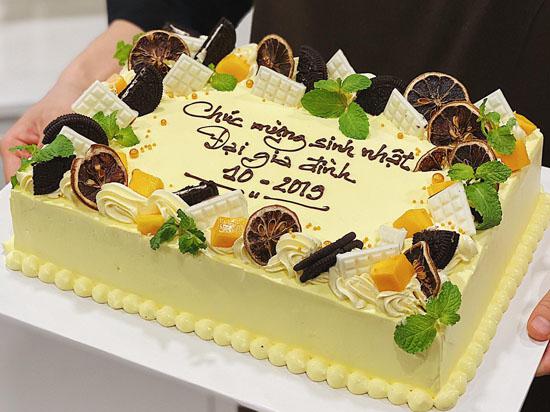 Chúc mừng sinh nhật
Đại gia đình
10 - 2019